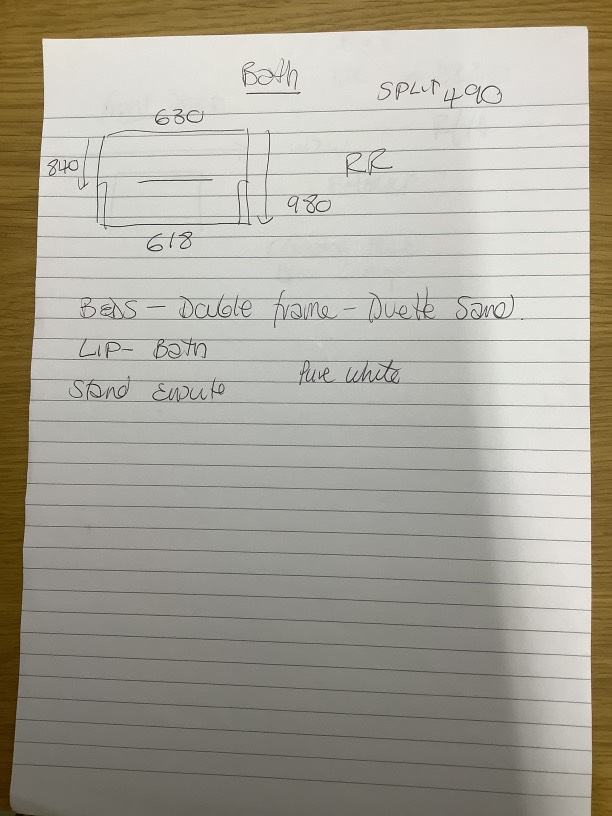 Bath
SPLIT 490
630
840
RR
980
618
BEDS - Double frame - Duette Sand.
LIP - Bath
Stand Ensuite
Pure white